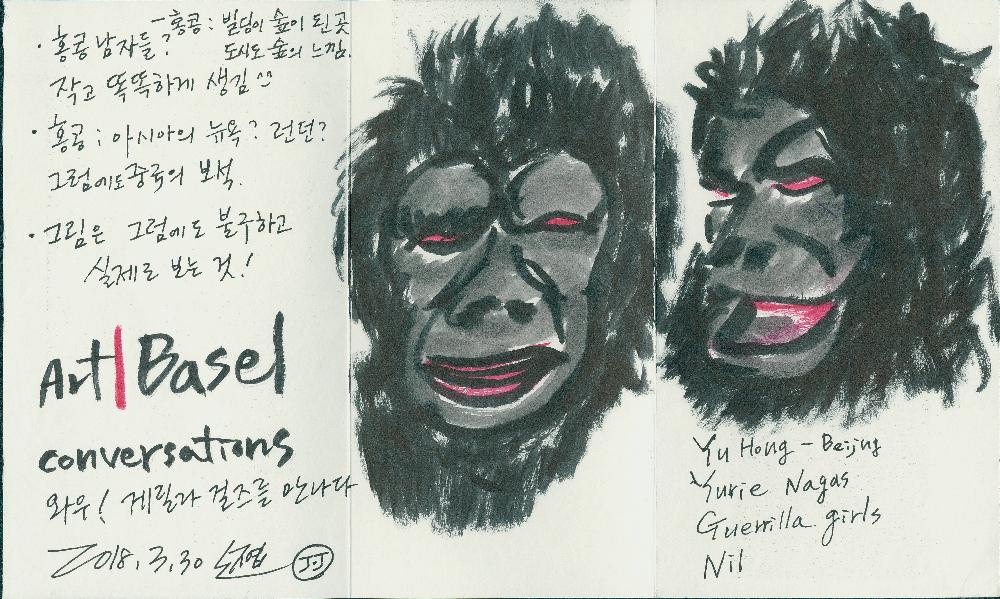 - 홍콩 : 빌딩이 숲이 된 곳
도시도 숲의 느낌.
· 홍콩 남자들?
작고 똑똑하게 생김
· 홍콩 ; 아시아의 뉴욕? 런던?
그럼에도 중국의 보석.
· 그림은 그럼에도 불구하고
실제로 보는 것!
Art|Basel
conversations
와우! 게릴라 걸즈를 만나다
2018. 3. 30
J.J
Yu Hong - Beijing
Yurie Nagas
Guerrilla girls
Nil